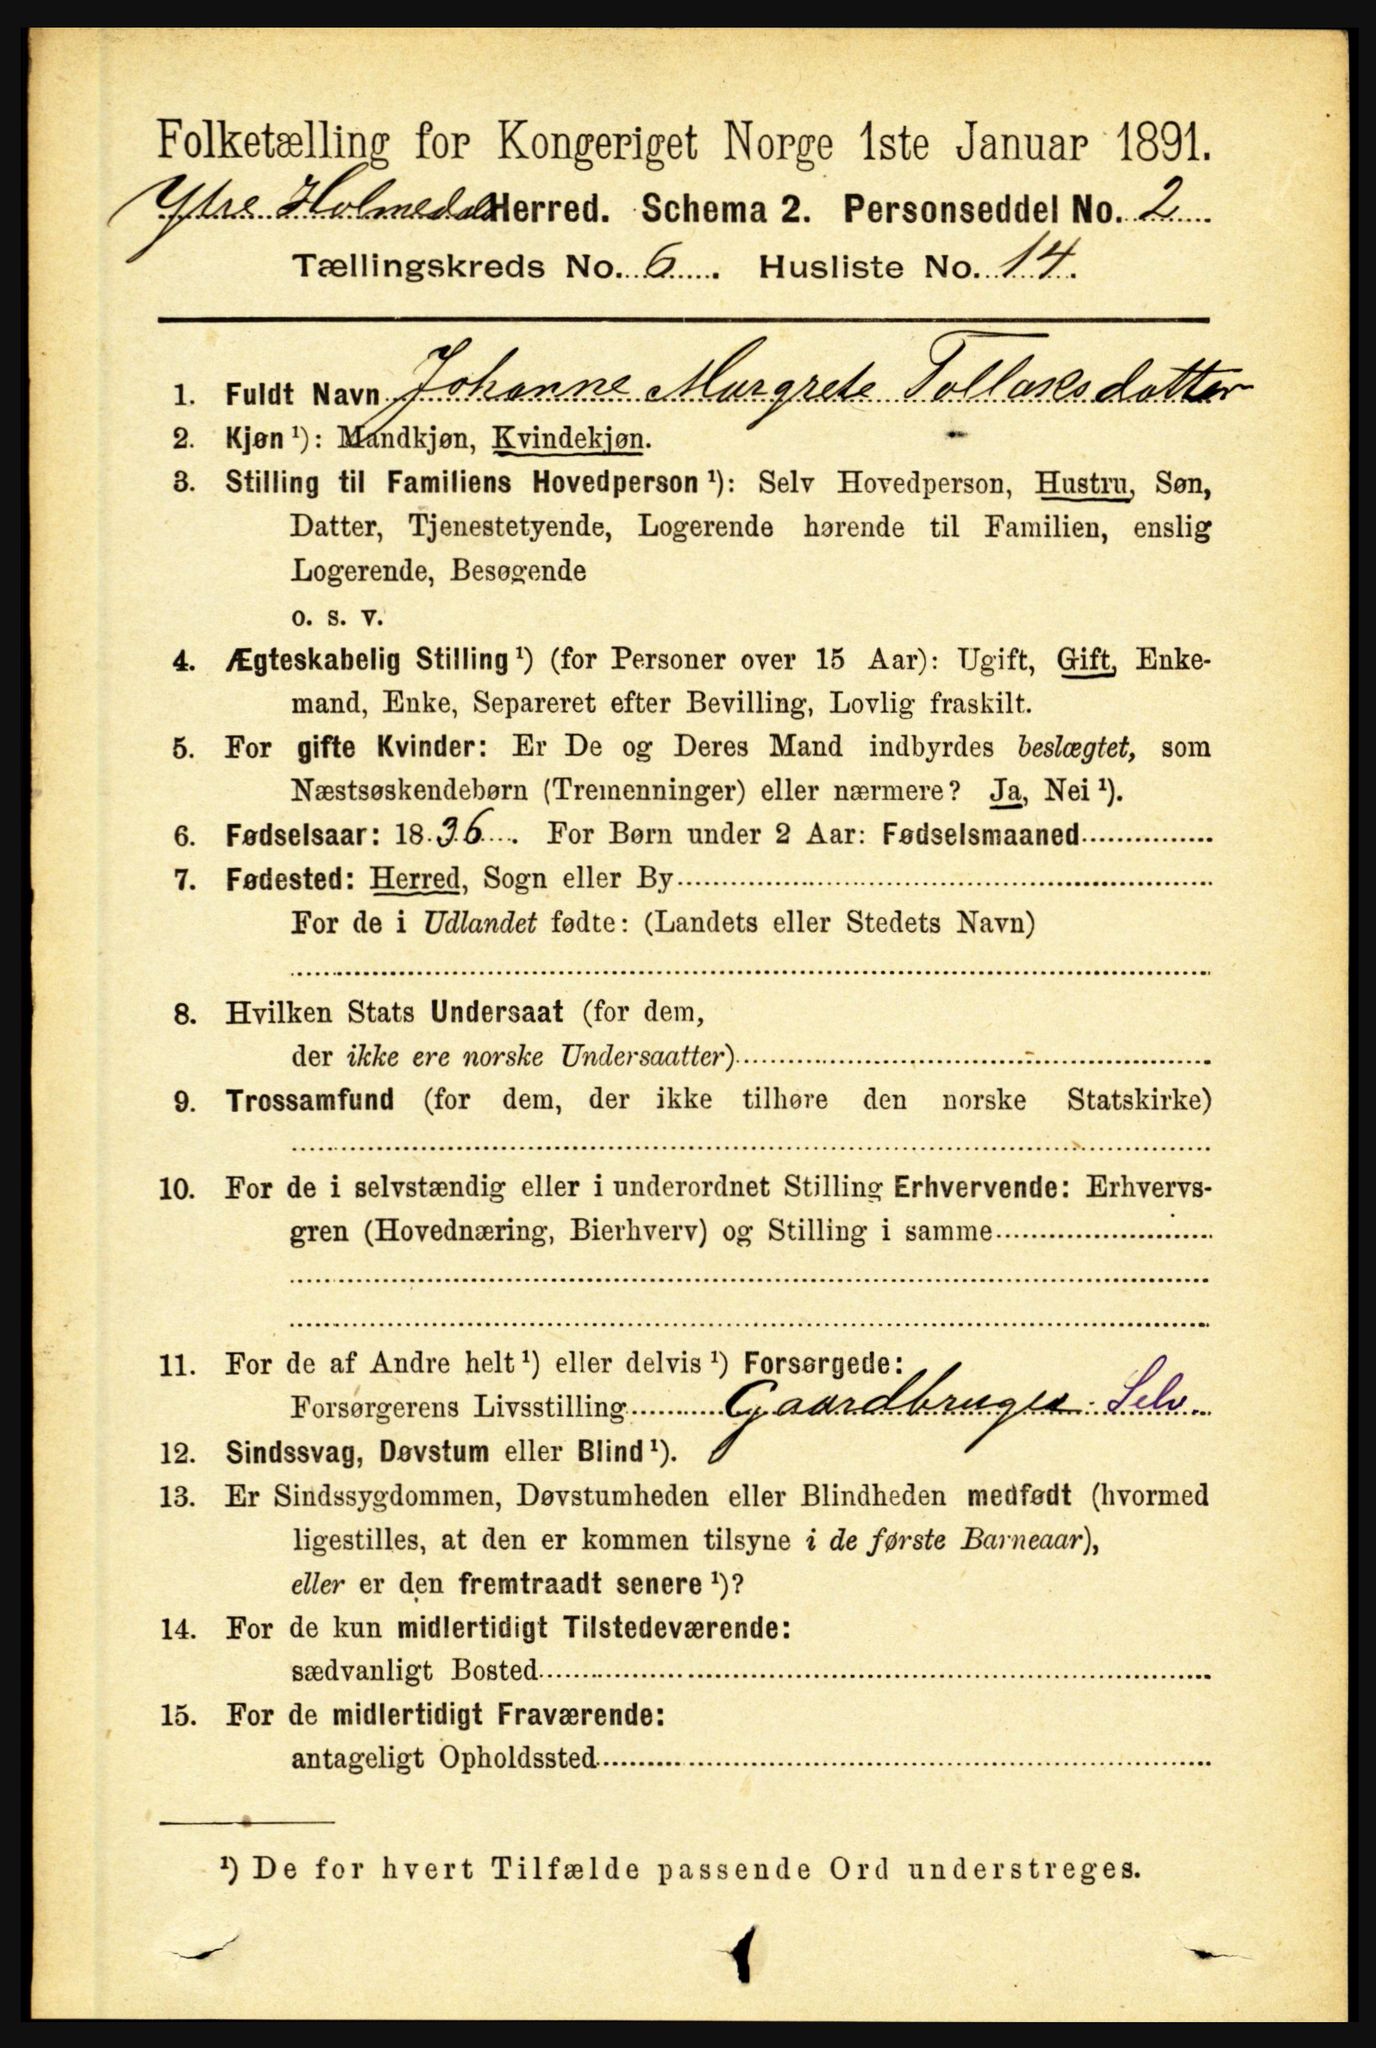 Folketælling for Kongeriget Norge 1ste Januar 1891.
Ytre Holmedals Herred. Schema 2. Personseddel No. 2
Tællingskreds No. 6. Husliste No. 14.
1. Fuldt Navn Johanne Margrete Tollaksdatter
2. Kjøn¹): Mandkjøn, Kvindekjøn.
3. Stilling til Familiens Hovedperson¹): Selv Hovedperson, Hustru, Søn,
Datter, Tjenestetyende, Logerende hørende til Familien, enslig
Logerende, Besøgende
o. s. v.
4. Ægteskabelig Stilling¹) (for Personer over 15 Aar): Ugift, Gift, Enke-
mand, Enke, Separeret efter Bevilling, Lovlig fraskilt.
5. For gifte Kvinder: Er De og Deres Mand indbyrdes beslægtet, som
Næstsøskendebørn (Tremenninger) eller nærmere? Ja, Nei¹).
6. Fødselsaar: 1836. For Børn under 2 Aar: Fødselsmaaned
7. Fødested: Herred, Sogn eller By
For de i Udlandet fødte: (Landets eller Stedets Navn)
8. Hvilken Stats Undersaat (for dem,
der ikke ere norske Undersaatter)
9. Trossamfund (for dem, der ikke tilhøre den norske Statskirke)
10. For de i selvstændig eller i underordnet Stilling Erhvervende: Erhvervs-
gren (Hovednæring, Bierhverv) og Stilling i samme
11. For de af Andre helt¹) eller delvis¹) Forsørgede:
Forsørgerens Livsstilling Gaardbruger Selv.
12. Sindssvag, Døvstum eller Blind¹).
13. Er Sindssygdommen, Døvstumheden eller Blindheden medfødt (hvormed
ligestilles, at den er kommen tilsyne i de første Barneaar),
eller er den fremtraadt senere¹)?
14. For de kun midlertidigt Tilstedeværende:
sædvanligt Bosted
15. For de midlertidigt Fraværende:
antageligt Opholdssted
¹) De for hvert Tilfælde passende Ord understreges.